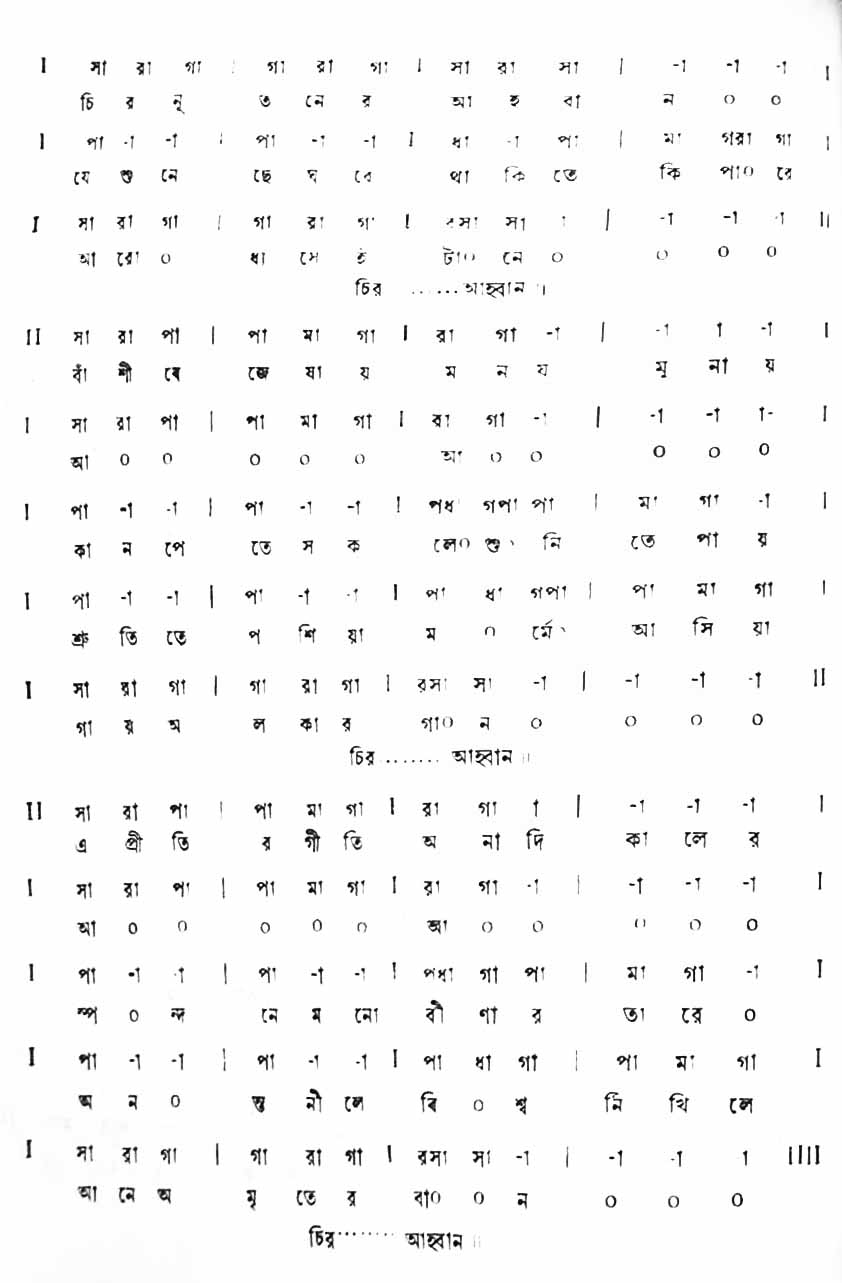 I সা রা গা | গা রা গা I সা রা সা | -া -া -া I
চি র নূ ত নে র আ হ বা ন ০ ০
I পা -া -া | পা -া -া I ধা -া পা | মা গরা গা I
যে শু নে ছে ঘ রে থা কি তে কি পা০ রে
I সা রা গা | গা রা গা I রসা সা া | -া -া -া II
আ রো ০ ধা সে ই টা০ নে ০ ০ ০ ০
চির ......আহ্বান ॥
II সা রা পা | পা মা গা I রা গা -া | -া া -া I
বাঁ শী বে জে যা য় ম ন য মু না য়
I সা রা পা | পা মা গা I রা গা -া | -া -া া- I
আ ০ ০ ০ ০ ০ আ ০ ০ ০ ০ ০
I পা -া -া | পা -া -া I পধা গপা পা | মা গা -া I
কা ন পে তে স ক লে০ শু ৲ নি তে পা য়
I পা -া -া | পা -া -া I পা ধা গপা | পা মা গা I
শ্রু তি তে প শি য়া ম ০ র্মে ৲ আ সি য়া
I সা রা গা | গা রা গা I রসা সা -া | -া -া -া II
গা য় অ ল কা র গা০ ন ০ ০ ০ ০
চির ........ আহ্বান ॥
II সা রা পা | পা মা গা I রা গা া | -া -া -া I
এ প্রী তি র গী তি অ না দি কা লে র
I সা রা পা | পা মা গা I রা গা -া | -া -া -া I
আ ০ ০ ০ ০ ০ আ ০ ০ ০ ০ ০
I পা -া া | পা -া -া I পধা গা পা | মা গা -া I
স্প ০ ন্দ নে ম নো বী ণা র তা রে ০
I পা -া -া | পা -া -া I পা ধা গা | পা মা গা I
অ ন ০ ন্ত নী লে বি ০ শ্ব নি খি লে
I সা রা গা | গা রা গা I রসা সা -া | -া -া া IIII
আ নে অ মৃ তে র বা০ ০ ন ০ ০ ০
চির........ আহ্বান ॥